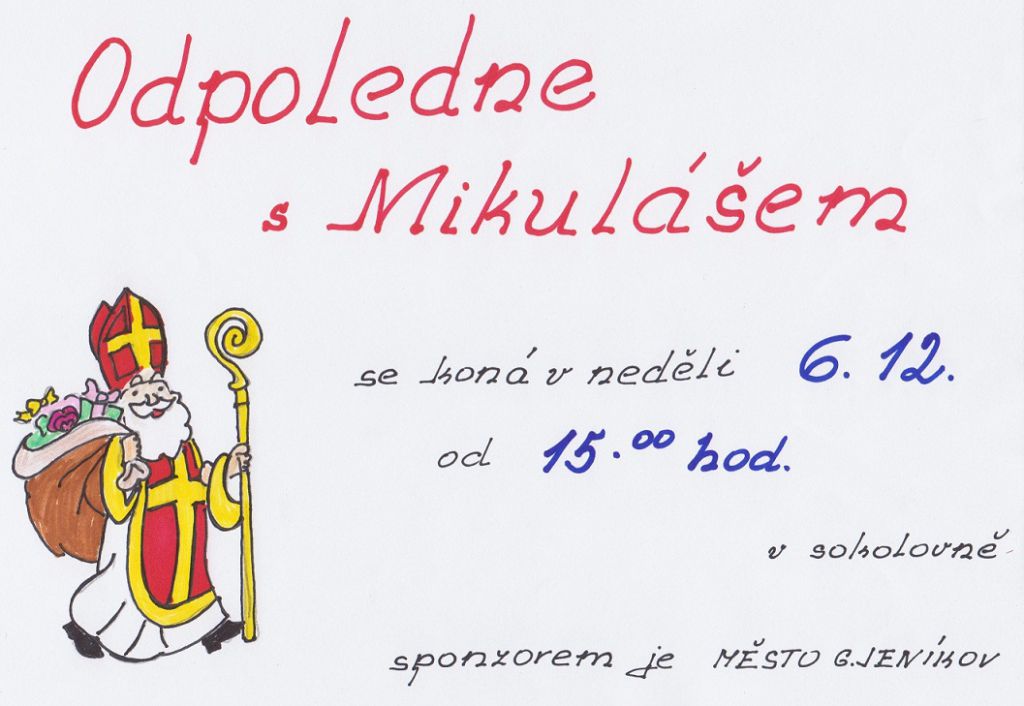 Odpoledne
s Mikulášem
se koná v neděli 6. 12.
od 15.00 hod.
v sokolovně
sponzorem je MĚSTO G.JENÍKOV